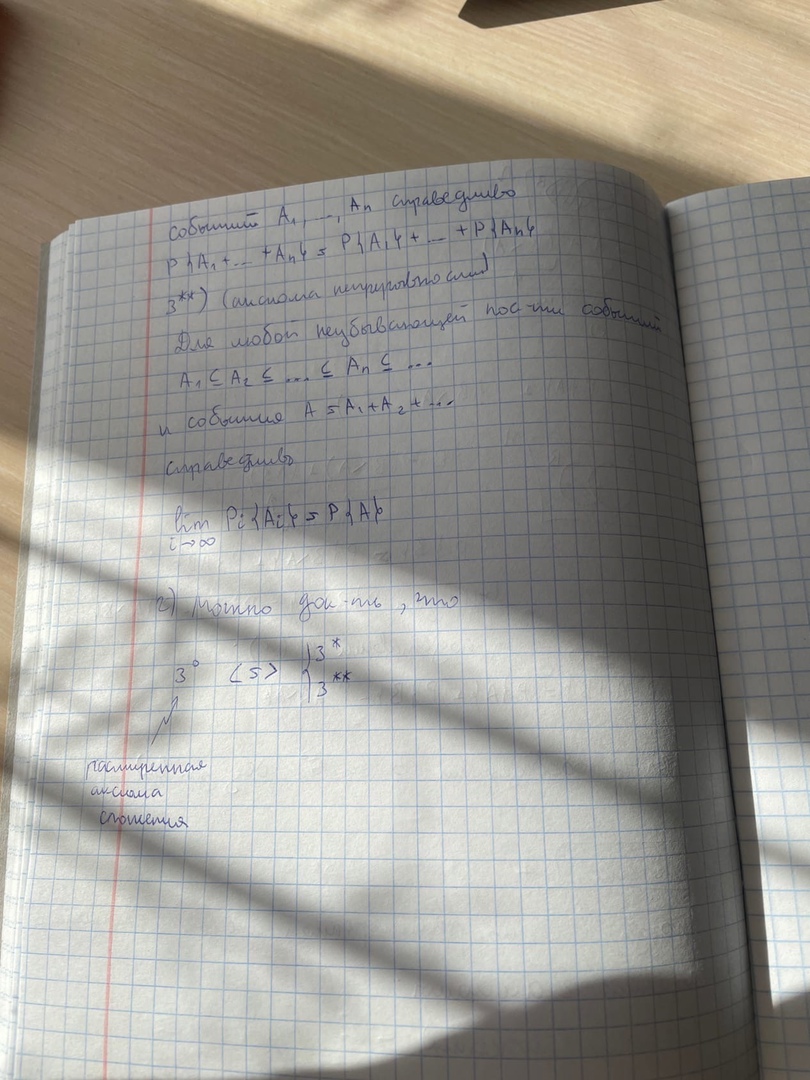 событий A₁, ..., Aₙ справедливо
P{A₁ + ... + Aₙ} = P{A₁} + ... + P{Aₙ}
3**) (аксиома непрерывности)
Для любой неубывающей пос-ти событий
A₁ ⊆ A₂ ⊆ ... ⊆ Aₙ ⊆ ...
и события A = A₁ + A₂ + ...
справедливо
lim Pi{Ai} = P{A}
i→∞
2) Можно док-ть, что
3° <=> { 3*
3**
расширенная
аксиома
сложения